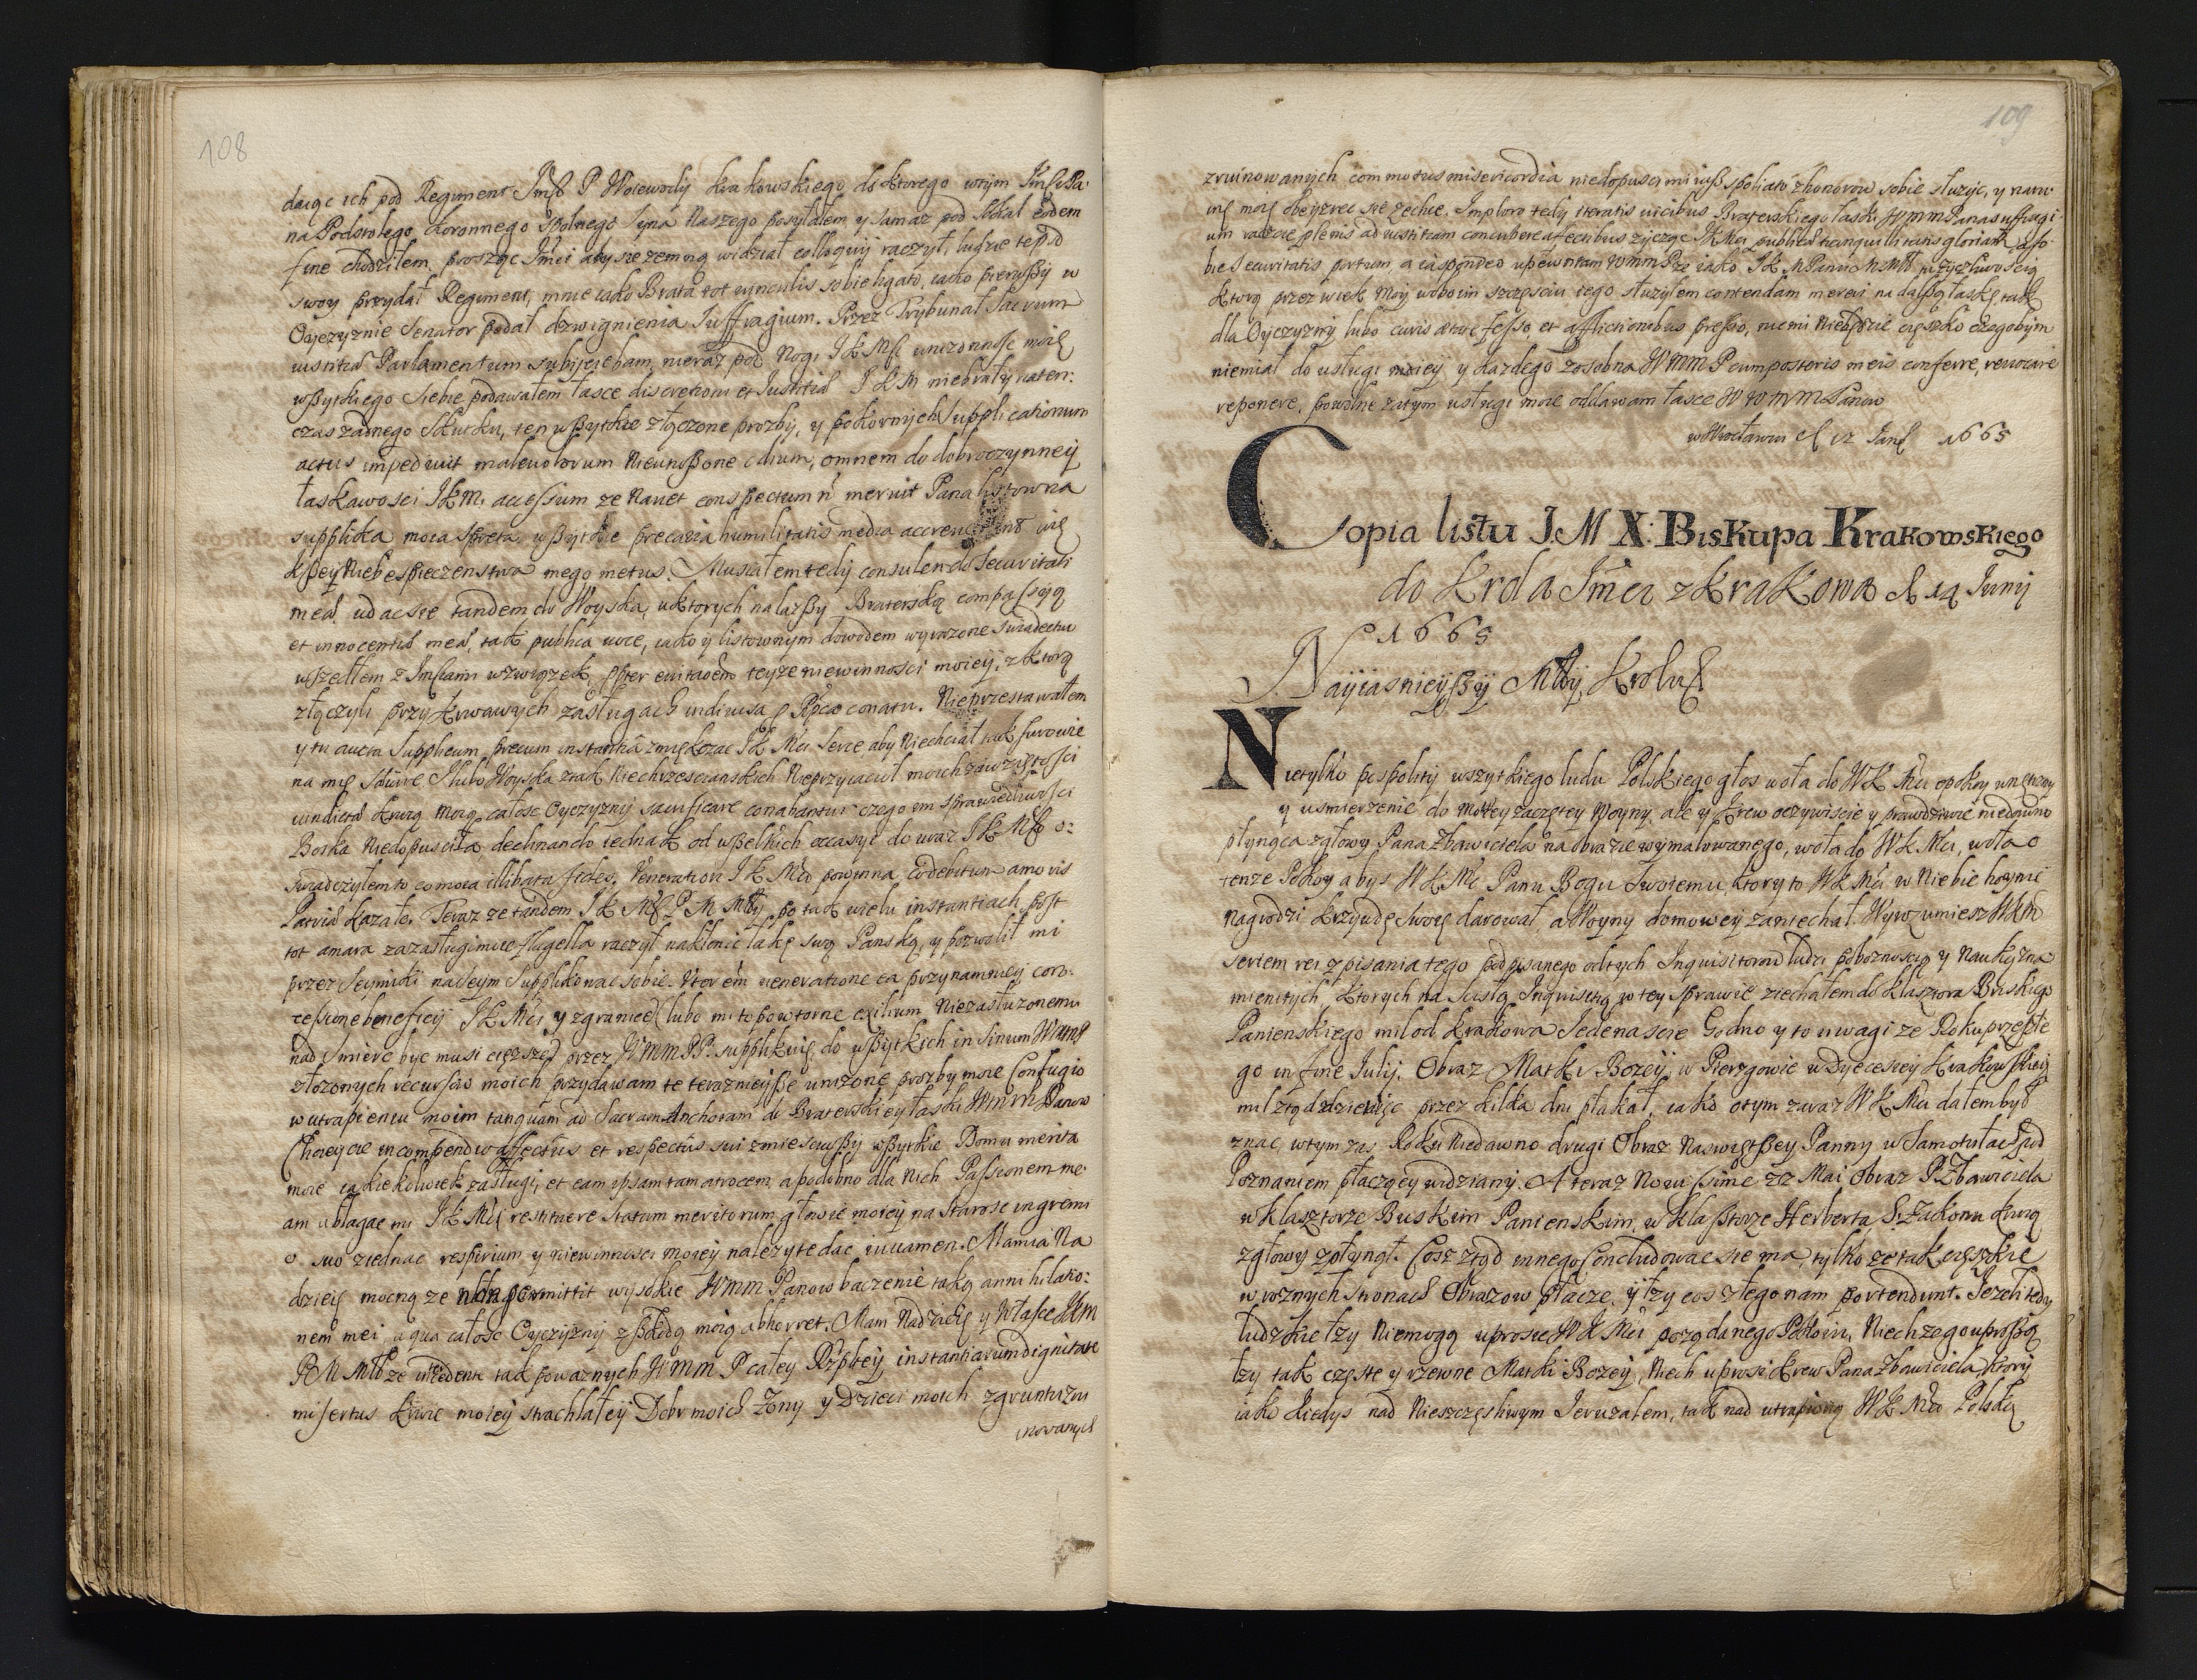 108
daiąc ich pod Regiment Jmści P Woiewody Krakowskiego, do ktorego wtym Jmści Pa
na Podstolego Koronnego spolnego Syna Naszego posyłałem y sam az pod Sokal eodem
fine chodziłem, prosząc Jmści aby sie zemną widział colloquij raczył, ludzie te pod
swoy przydał Regiment, mnie iako Brata tot vinculis sobie ligato, iako pierwszy w
Oyczyznie Senator podał dzwignienia suffragium. Przez Trybunał Sacrum
iustitiæ Parlamentum subijciebam, nieraz pod Nogi JKMsci unizonosc moię
wszytkiego siebie podawałem łasce discretioni et Iustitiæ JKM niebrały naten:
czas zadnego skutku, ten wszytkie złączone prozby, y pokornych supplicationum
actus impediuit maleuolorum Nieuproszone odium, omnem do dobroczynney
łaskawosci JKM. accessum ze Nauet conspectum n meruit Pana listowna
supplika moia spreta, wszytkie precaria humilitatis media
kszey Niebespieczenstwa mego metus. Musiałem tedy consulendo securitati
meæ udac sie tandem do Woyska, uktorych nalazszy Braterską compassyą
et innocentiæ meæ, tak publica voce, iako y listownym dowodem wyrazone swiadectwo
wszedłem z Jmściami wzwiązek, teyze niewinnosci moiey, zktorą
złączyli przy krwawych zasługach indiuisa conatu. Nieprzestawałem
y tu aucta supplicum precum instantia zmiękczac JK Mci serce aby Niechciał tak surowie
na mię Woyska ztak Niechrzescianskich Nieprzyiacioł moich zawziętosci
vindicta krwią moią całosc Oyczyzny sacrificare conabantur czego im sprawiedliwosci
Boska Niedopusciła, declinando iednak od wszelkich occasyi do uraz JK Msci o:
swiadczyłem to co moia illibata fides, Venerationi JK Mci powinna, debitum amoris
Patriæ kazało. Teraz ze tandem JK Mść P M Mwy po tak wielu instantiach post
tot amara zazasługi moie flagella raczył nakłonic łakę swą Panską, y pozwolił mi
przez Seymiki na Seym Supplikowac sobie. Vtor veneratione ea przynamniey con:
cessione beneficij JK Mci y zgranice (lubo mi to powtorne exilium Niezasłuzonemu
nad smierc byc musi cięzsze) przez WMM PP. supplikuię do wszytkich in sinum WMM
złozonych recursow moich przydawam te teraznieysze unizone prozby moie Confugio
w utrapieniu moim tanquam ad Sacram Anchoram do Braterskiey łaski WMM Panow
Chcieycie in compendio affectus et respectus sui zmiesciwszy wszytkie Domu merita
moie iakiekolwiek zasługi, et eam ipsam tam atrocem, a podobno dla Nich Passionem me:
am ubłagac mi JK Mci restituere statum meritorum, głowie moiey na starosc in gremi
o suo ziednac respirium y niewinnosci moiey nalezyte dac iuuamen. Mamia Na
dzieię mocną ze permittit wysokie WMM Panow baczenie taką annihilatio:
nem mei, a qua całosc Oyczyzny zszkodą moią abhorret. Mam Nadzieię y Własce JKM
P M Mśc ze incedent tak powaznych WMM P całey Rzptey instantiarum dignitate
misertus krwie moiey strachlałey Dobr moich Zony y Dzieci moich zgruntu zru
inowanych
109
zruinowanych commotus misericordia niedopusci mi iusz spoliato zhonorow sobie słuzyc, y naru
inę moię obeyzrec sie zechce. Imploro tedy iteratis vicibus Braterskiego łaski WMM Pana suffragi:
um raczcie plenis ad iustitiam concubere affectibus zycząc JK Mci publicæ tranquillitatis gloriam, a so:
bie securitatis portum, a ia spondeo upewniam WMM P ze iako JK M Panu M Młwu zyczliwoscią
ktorą przez wiek moy wdobrym szczęsciu iego słuzyłem contendam mereri na dalszą łaskę, tak
dla Oyczyzny lubo curis ætate fesso, et afflictionibus presso, nie mi niebędzie cięszko czegobym
niemiał do usługi moiey y kazdego zosobna WMM P cum posteris meis conferre, reuocare
reponere, powolne zatym usługi moie oddawam łasce WWMM Panow
wWrocławiu d 12 Jan 1665
Copia listu J. M X: Biskupa Krakowskiego
do Krola Jmci z Krakowa d 14 Junij
1665
Nayiasnieyszy Mśwy Krolu
Nietylko pospolity wszytkiego ludu Polskiego głos woła do WK Mci opokoy wnętrzny
y usmierzenie domowey zaczętey Woyny, ale y krew oczywiscie y prawdziwie niedawno
płynąca zgłowy Pana Zbawiciela na obrazie wymalowanego, woła do WK Mci, woła o
tenze Pokoy abys WK Mc Panu Bogu Swoiemu, ktory to WK Mci w Niebie hoynie
Nagrodzi krzywdę swoię darował, a Woyny domowey zaniechał. Wyrozumiesz WKM
seriem rei z pisania tego podpisanego odtych Inquisitorow ludzi poboznoscią y Nauką zna
mienitych, ktorych na scisłą Inquisitią w tey sprawie ziechałem do klasztora Buskiego
Panienskiego mil od Krakowa Iedenascie Godno y to uwagi ze Roku przeszłe
go in fine Julij. Obraz Matki Bozey w Pierzgowie w Dyecesiey Krakowskiey
mil ztąd dziewięc przez kilka dni płakał, iako o tym zaraz WK Mci dałem był
znac, wtym zas Roku Niedawno drugi Obraz Naswiętszey Panny w Samotułach pod
Poznaniem płaczący widziany. A teraz Nouissime 22 Maij Obraz P. Zbawiciela
w klasztorze Buskim Panienskim, w klasztorze Herberta, S. Zakonu krwią
zgłowy zpłynął. Cosz ztąd innego Concludowac sie ma, tylko ze tak cięszkie
w roznych stronach Obrazow płacze, y łzy cos złego nam portendunt. Jezeli tedy
ludzkie łzy Niemogą uprosic WK Mci poządanego Pokoiu, Niechze go uproszą
łzy tak częste y rzewne Matki Bozey, Niech uprosi krew Pana Zbawiciela, ktory
iako kiedys nad Nieszczęsliwym Ieruzalem, tak nad utrapioną WK Mci Polską